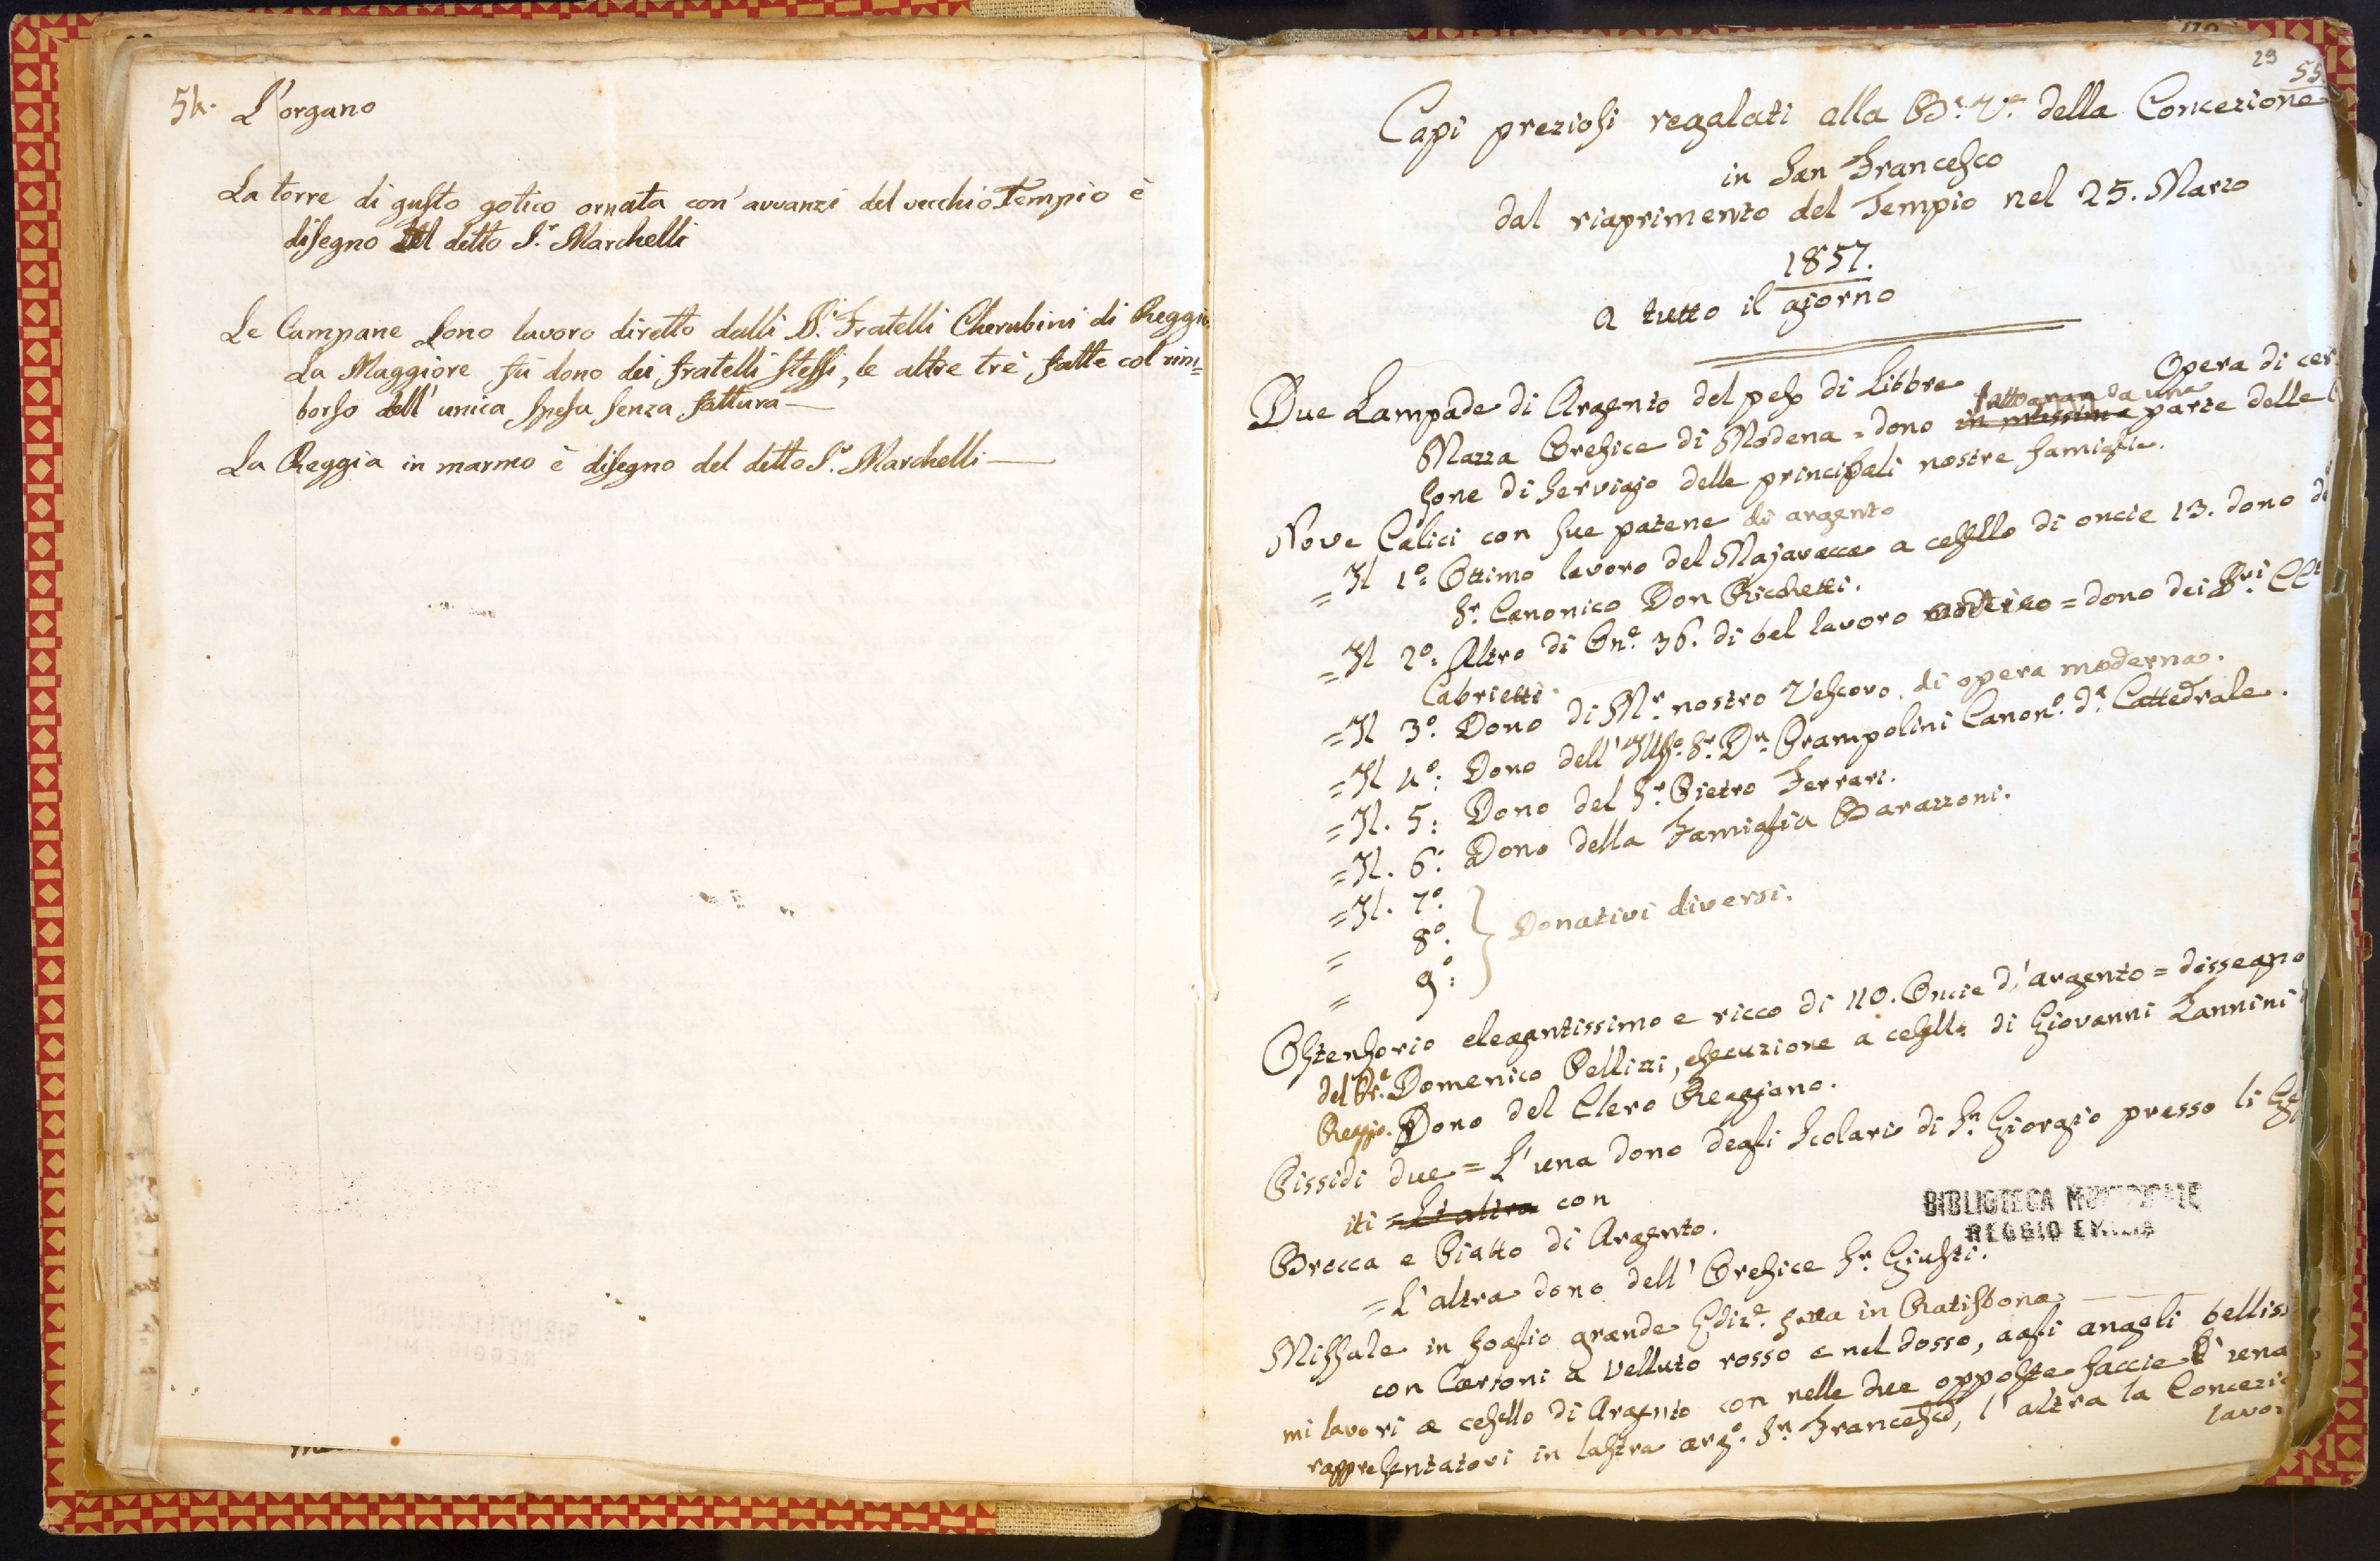 54.
L'organo
La torre di gusto gotico ornata con avvanzi del vecchio Tempio è
disegno del detto S.r Marchelli
Le Campane sono lavoro diretto dalli S.i Fratelli Cherubini di Reggio
La Maggiore fù dono dei fratelli stessi, le altre trè, fatte col rim=
borso dell'unica spesa senza fattura —
La Reggia in marmo è disegno del detto S.r Marchelli —
29
55.
Capi preziosi regalati alla B.a V.e della Concezione
in San Francesco
dal riaprimento del Tempio nel 25. Marzo
1857.
a tutto il giorno
Due Lampade di Argento del peso di Libbre Opera di cer
Mazza Orefice di Modena = dono in massima parte delle
da una
sone di servigio delle principali nostre famiglie.
Nove Calici con sue patene di argento
= Il 1.o: Ottimo lavoro del Majavacca a cesello di oncie 13. dono d
S.r Canonico Don Ricchetti.
= Il 2.o: Altro di On.e 36. di bel lavoro = dono dei
Cabrietti
= Il 3.o Dono di M.r nostro Vescovo. di opera moderna.
= Il 4.o: Dono dell' Ill.o S.r D.n Grampolini Canon.o d.a Cattedrale.
= Il. 5: Dono del S.r Pietro Ferrari.
= Il. 6: Dono della Famiglia Barazzoni.
= Il. 7.o
= 8.o. Donativi diversi.
= 9.o:
Ostensorio elegantissimo e ricco di 110. Oncie d'argento = dissegno
del Domenico Pellizzi, esecuzione a cesello di Giovanni Zannini
Reggio. Dono del Clero Reggiano.
Pissidi due = L'una dono degli Scolari di S.n Giorgio presso li
iti = L'altra con
Brocca e Piatto di Argento.
BIBLIOTECA MUNICIPALE
REGGIO EMILIA
= L'altra dono dell' Orefice S.r Giusti.
Missale in foglio grande Ediz.e fatta in Ratisbona —
con Cartoni a velluto rosso e nel dosso, agli angeli belliss
mi lavori a cesello di Argento con nelle due opposte faccie l'una
rappresentatovi in lastra arg.o S.n Francesco, l'altra la Concezio
lavo